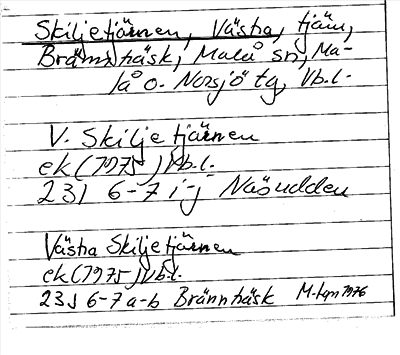 Skiljetjärnen, Västra, tjärn,
Brännträsk, Malå sn, Ma-
lå o. Norsjö tg, Vb.l.
V. Skiljetjärnen
ek (1975) Vb.l.
23J 6-7 i-j Näsudden
Västra Skiljetjärnen
ek (1975) Vb.l.
23J 6-7 a-b Brännträsk M-bqm 1976